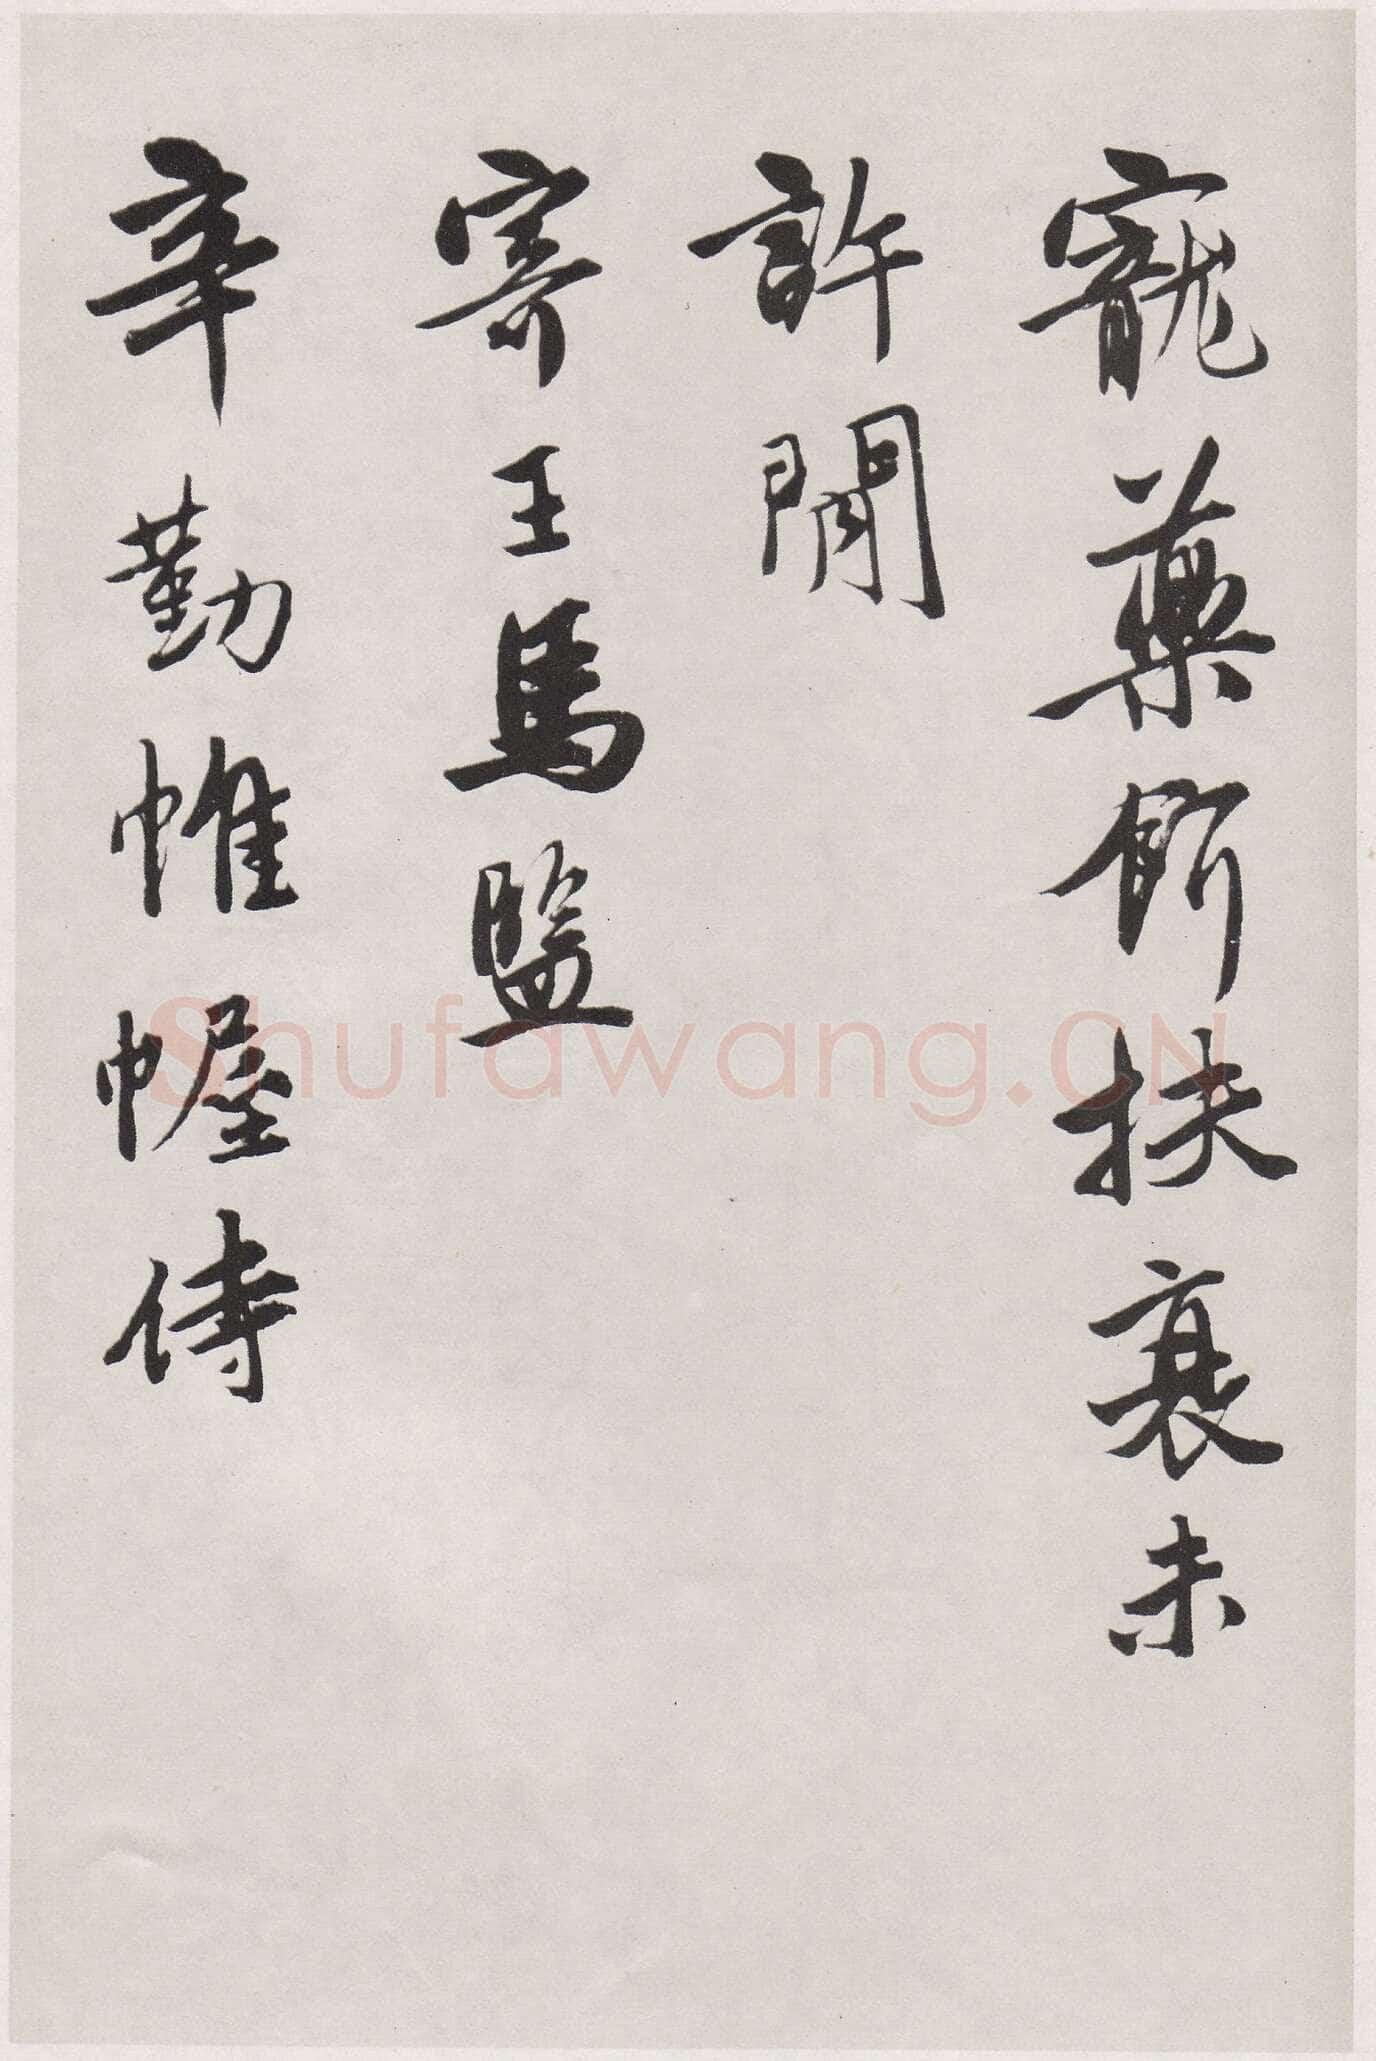 寵藥餌扶衰未
許閒
寄王馬監
辛勤帷幄侍
Shufawang.CN